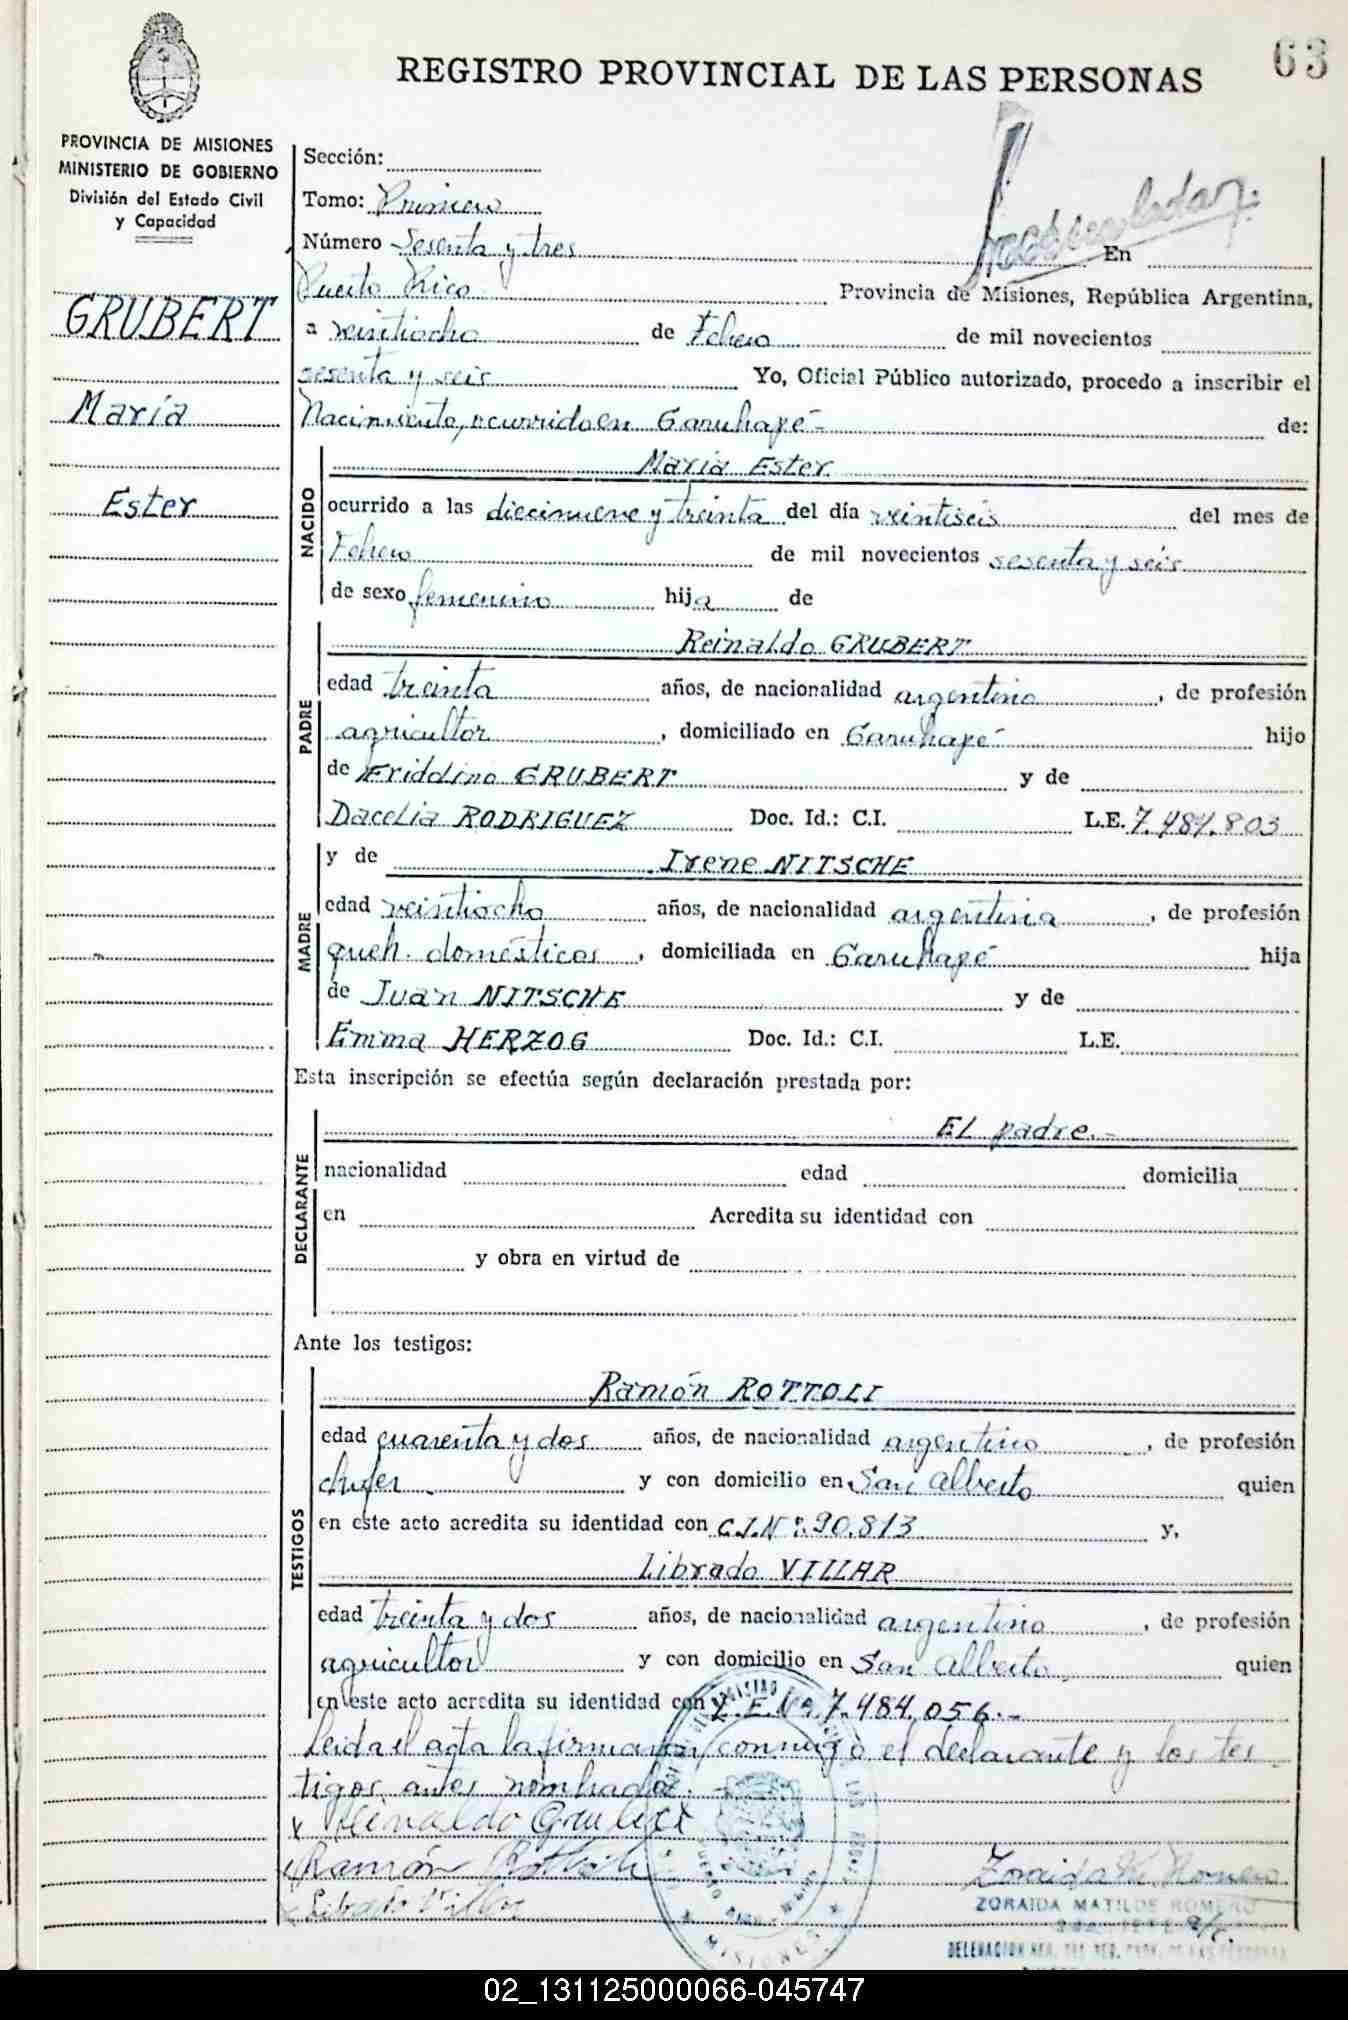 63
REGISTRO PROVINCIAL DE LAS PERSONAS
PROVINCIA DE MISIONES
MINISTERIO DE GOBIERNO
División del Estado Civil
y Capacidad
GRUBERT
María
Ester
Sección:
Tomo: Primero
Número Sesenta y tres En
Puerto Rico Provincia de Misiones, República Argentina,
a veintiocho de Febrero de mil novecientos
sesenta y seis Yo, Oficial Público autorizado, procedo a inscribir el
Nacimiento, ocurrido en Garuhapé- de:
NACIDO
María Ester
ocurrido a las diecinueve y treinta del día veintiseis del mes de
Febrero de mil novecientos sesenta y seis
de sexo femenino hija de
PADRE
Reinaldo GRUBERT
edad treinta años, de nacionalidad argentino, de profesión
agricultor, domiciliado en Garuhapé- hijo
de Friddino GRUBERT y de
Dacelia RODRIGUEZ Doc. Id.: C.I. L.E. 7.487.803
MADRE
y de Irene NITSCHE
edad veintiocho años, de nacionalidad argentina, de profesión
queh. domésticos, domiciliada en Garuhapé hija
de Juan NITSCHE y de
Emma HERZOG Doc. Id.: C.I. L.E.
Esta inscripción se efectúa según declaración prestada por:
DECLARANTE
El padre.-
nacionalidad edad domicilia
en Acredita su identidad con
y obra en virtud de
Ante los testigos:
TESTIGOS
Ramón ROTTOLI
edad cuarenta y dos años, de nacionalidad argentino, de profesión
chofer y con domicilio en San Alberto quien
en este acto acredita su identidad con C.I.Nº.90.813 y,
Librado VILLAR
edad treinta y dos años, de nacionalidad argentino, de profesión
agricultor y con domicilio en San Alberto quien
en este acto acredita su identidad con L.E.Nº 7.484.056.-
Leida el acta la firman conmigo el declarante y los tes
tigos antes nombrados.
x Reinaldo Grubert
Ramón Rottoli
Librado Villar
Zoraida M. Romero
ZORAIDA MATILDE ROMERO
MISIONES
02_131125000066-045747